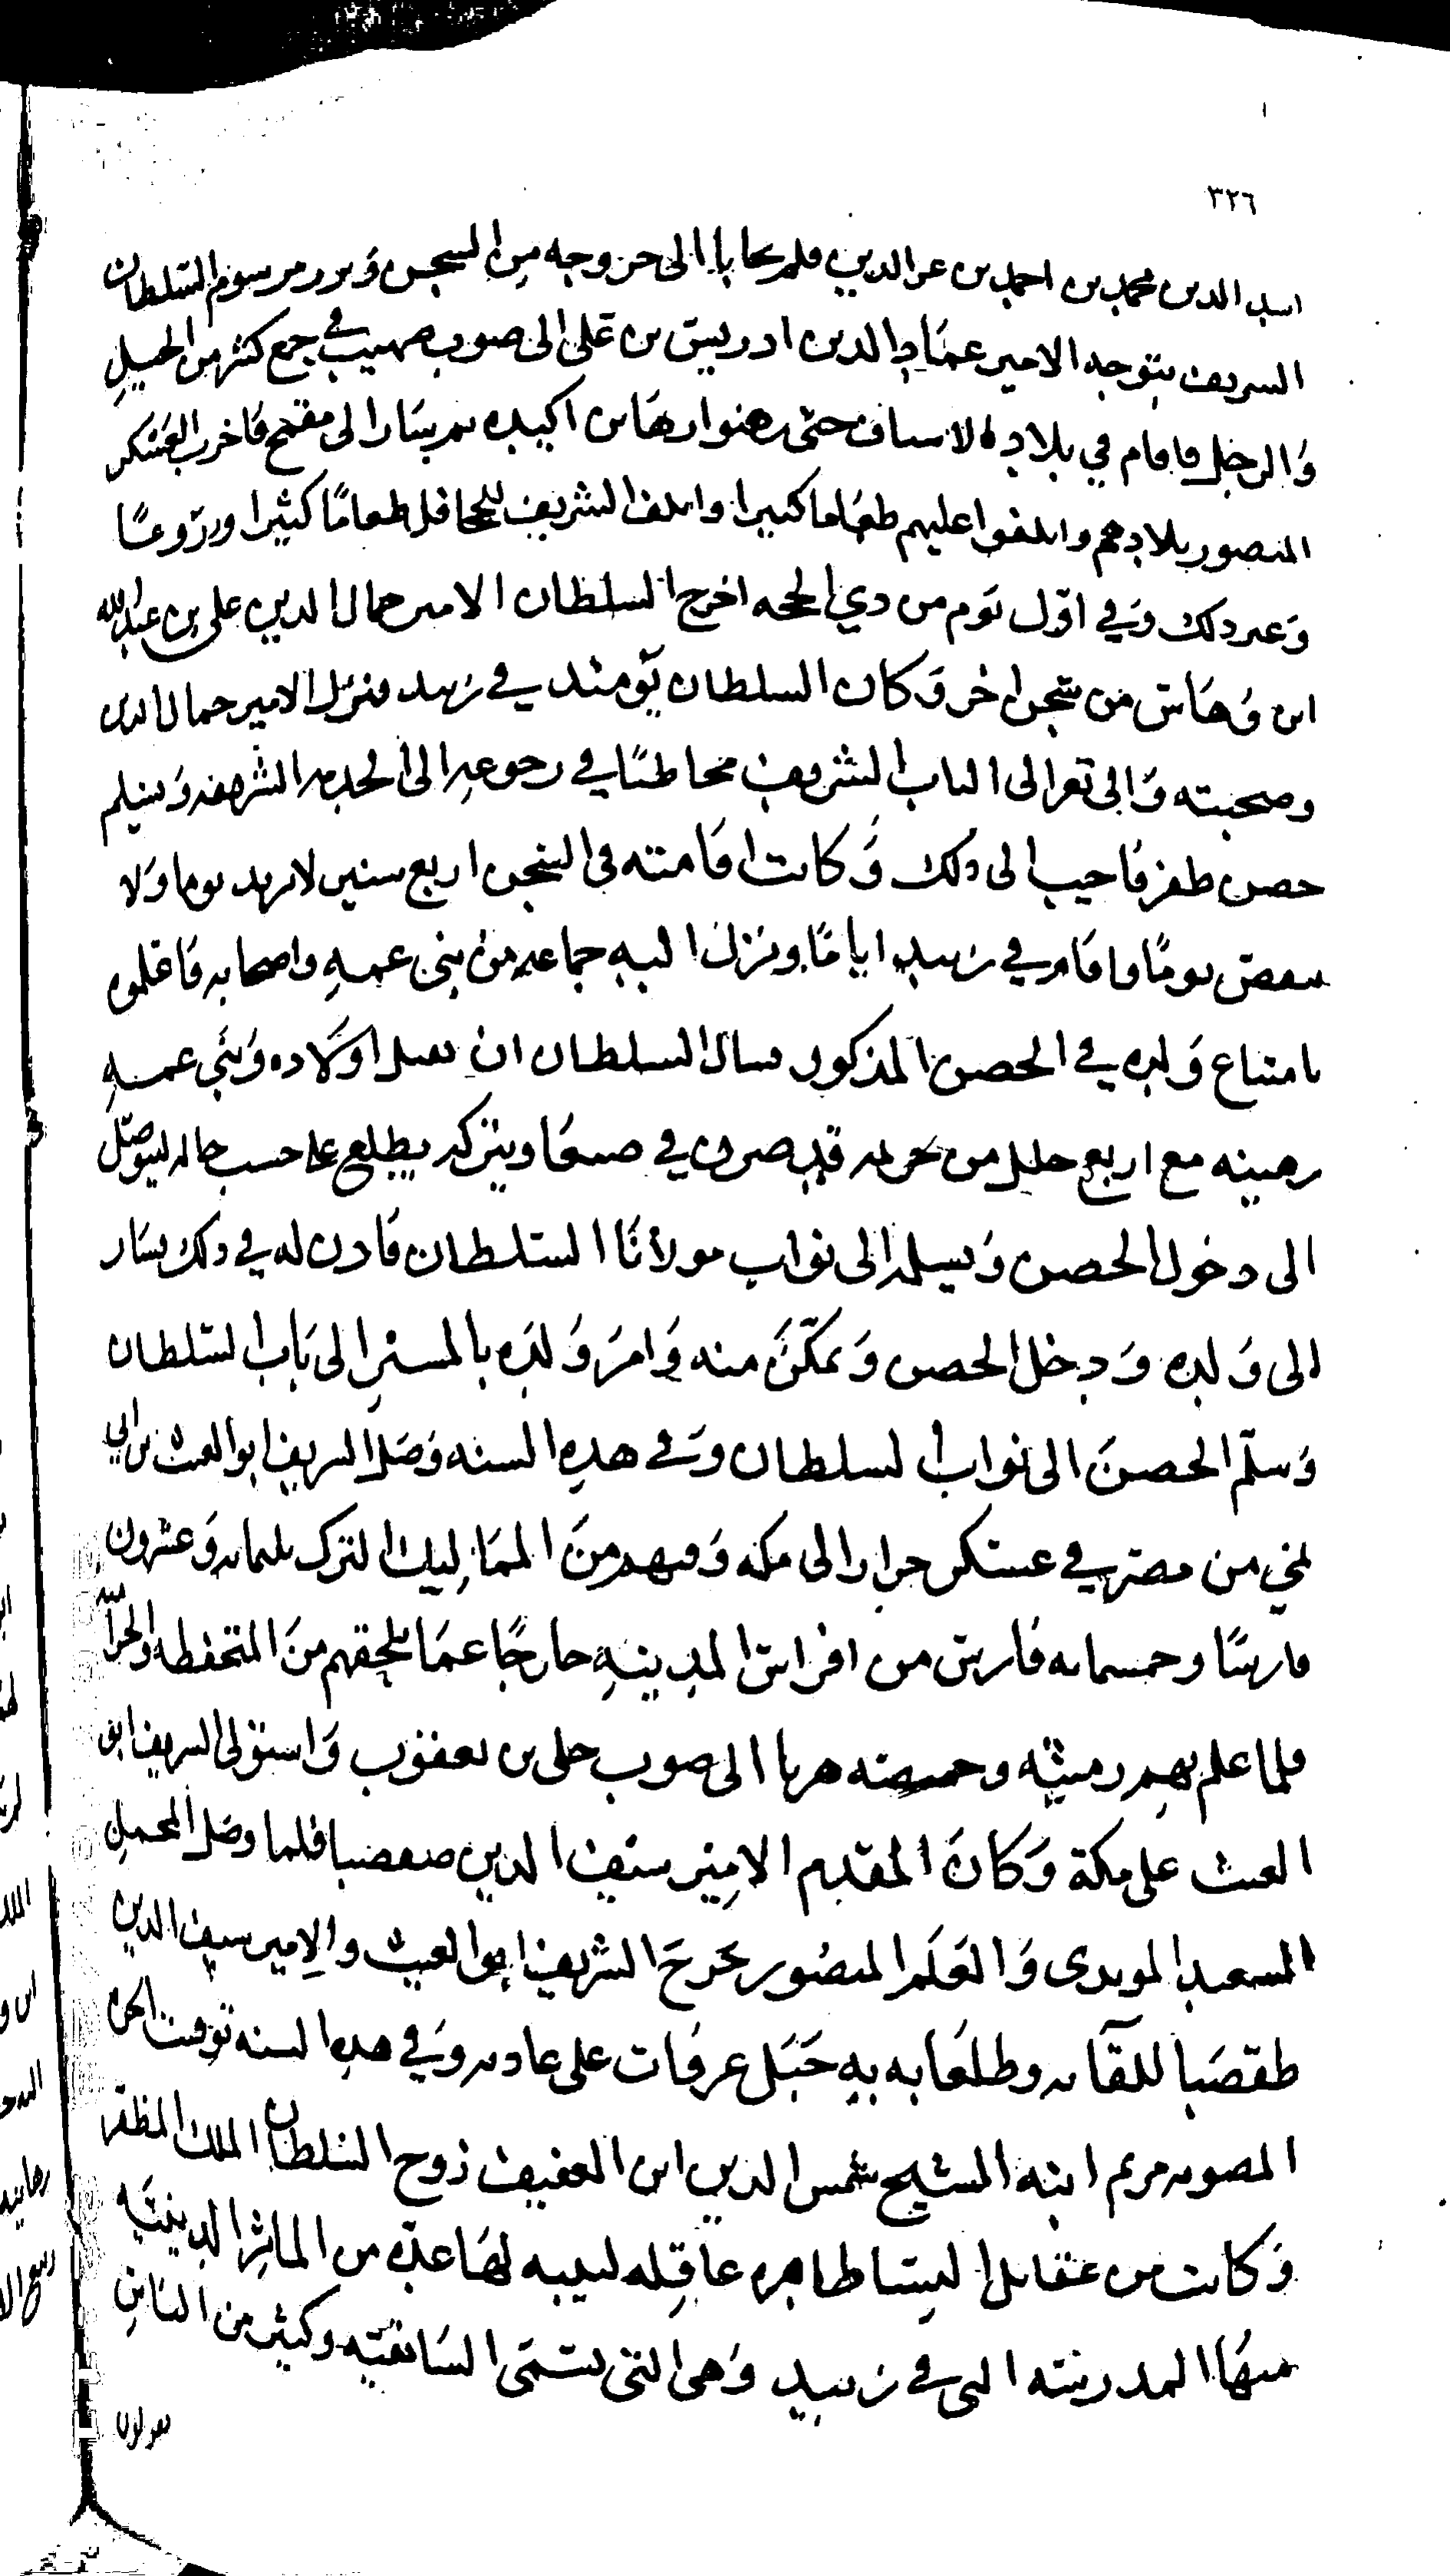 ٣٢٦
اسد الدين محمد بن احمد بن عز الدين فلم يجابا الى خروجه من السجن وبرز مرسوم السلطان
الشريف بتوجه الامير عماد الدين ادريس بن علي الى صوب صهيب في جمع كثير من الخيل
والرجل فاقام في بلاد الاساف حتى رهنوا رهاين اكيده ثم سار الى مقمح فاخرب العسكر
المنصور بلادهم واتلفوا عليهم طعاما كثيرا واتلف الشريف للجحافل طعاما كثيرا وزروعا
وغير ذلك وفي اول يوم من ذي الحجه اخرج السلطان الامير جمال الدين علي بن عبدالله
ابن وهاس من سجن اخر وكان السلطان يومئذ في زبيد فنزل الامير جمال الدين
وصحبته والي تعز الى الباب الشريف مخاطبا في رجوعه الى الخدمه الشريفه وتسليم
حصن ظفر فاجيب الى ذلك وكانت اقامته في السجن اربع سنين لا يزيد يوما ولا
ينقص يوما واقام في زبيد اياما ونزل اليه جماعه من بني عمه واصحابه فاعلموه
بامتناع ولده في الحصن المذكور فسال السلطان ان يقبل اولاده وبني عمه
رهينه مع اربع حلل من حريمه قد صرن في صنعا ويتركه يطلع على حسب حاله ليتوصل
الى دخول الحصن ويسلمه الى نواب مولانا السلطان فاذن له في ذلك فسار
الى ولده ودخل الحصن وتمكن منه وامر ولده بالمسير الى باب السلطان
وسلم الحصن الى نواب السلطان وفي هذه السنه وصل الشريف ابو الغيث بن ابي
نمي من مصر في عسكر جرار الى مكه وفيهم من المماليك الترك ثلثمايه وعشرون
فارسا وخمسمايه فارس من افراس المدينه خارجا عما يلحقهم من المتخطفه والحراميه
فلما علم بهم رميثه وحميضه هربا الى صوب حلى بن يعقوب واستولى الشريف ابو
الغيث على مكة وكان المقدم الامير سيف الدين طقصبا فلما وصل المحمل
السعيد المويدى والعلم المنصور خرج الشريف ابو الغيث والامير سيف الدين
طقصبا للقآئه وطلعا به به جبل عرفات على عادته وفي هذه السنه توفيت الحره
المصونه مريم ابنه الشيخ شمس الدين ابن العفيف زوج السلطان الملك المظفر
وكانت من عقايل النسا طاهره عاقله لبيبه لها عده من الماثر الدينيه
منها المدرسه التى في زبيد وهي التى تسمى السابقيه وكثير من الناس
يقولون